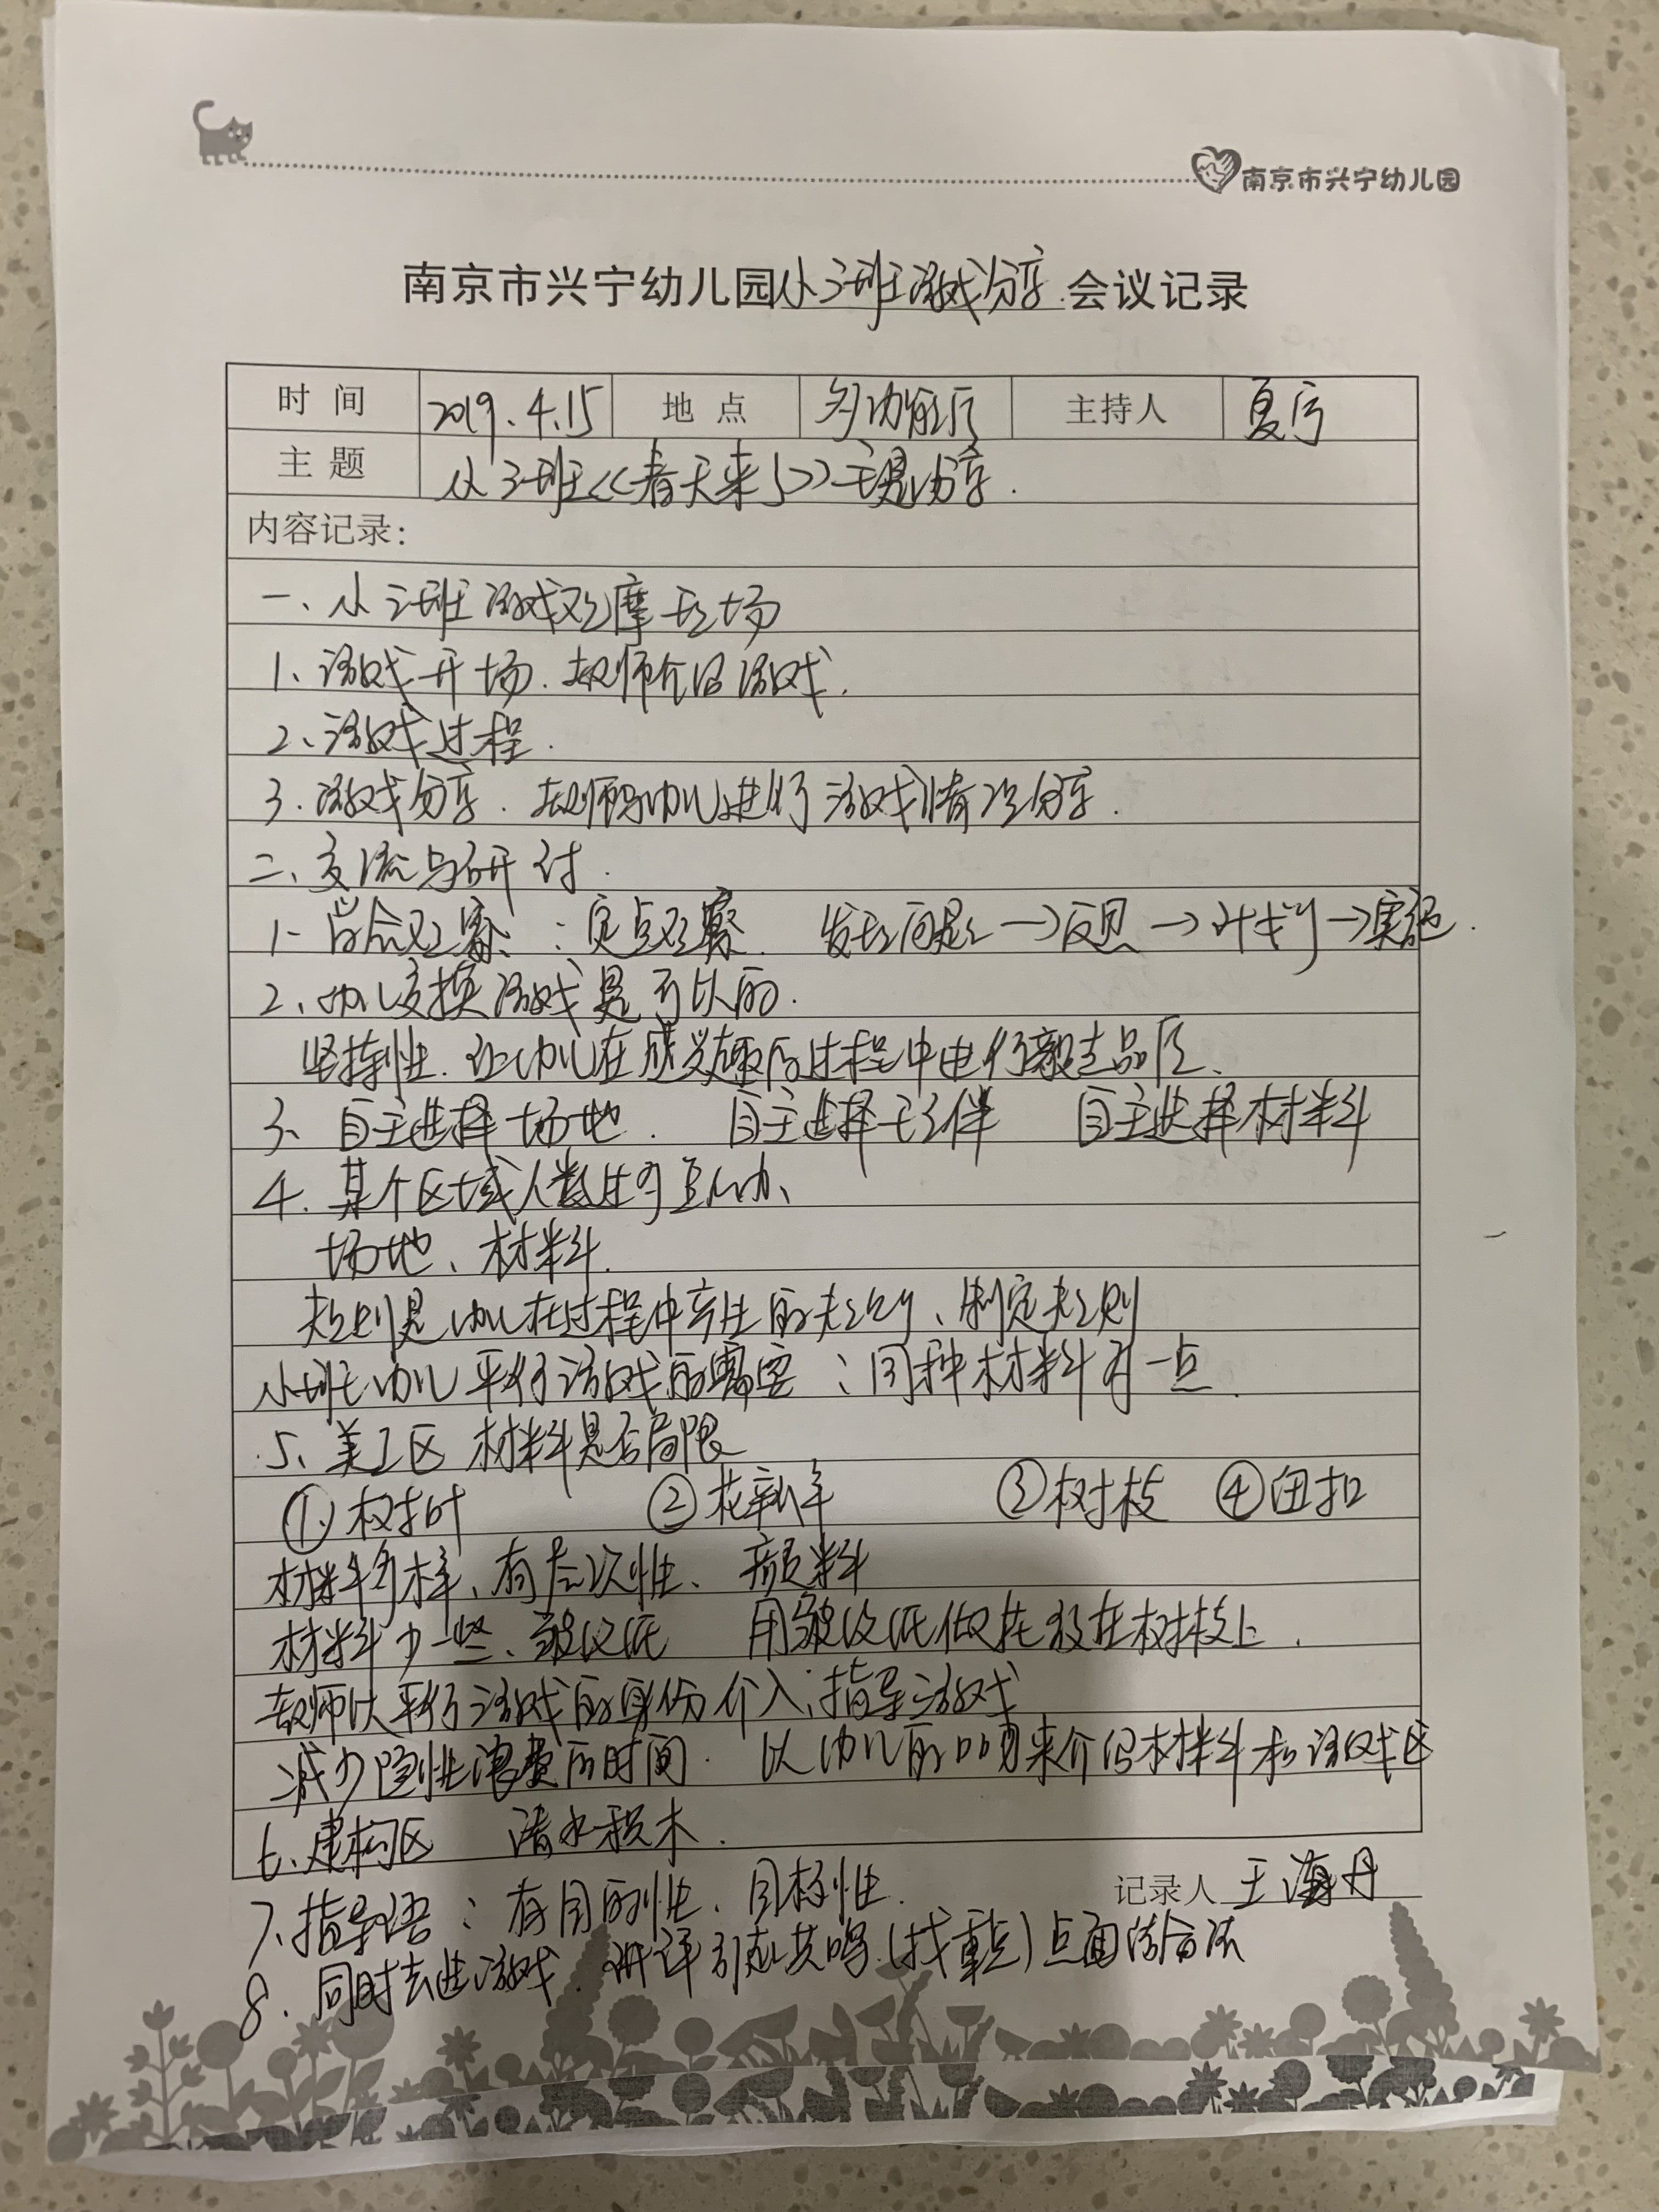 南京市兴宁幼儿园
南京市兴宁幼儿园小三班游戏分享会议记录
时间 2019.4.15 地点 多功能厅 主持人 夏宁
主题 小三班《春天来了》主题分享.
内容记录:
一、小三班游戏观摩现场
1、游戏开场.教师介绍游戏.
2、游戏过程.
3.游戏分享.教师与幼儿进行游戏情况分享.
二、交流与研讨.
1、观察:定点观察. 发现问题→反思→计划→实施.
2、幼儿交换游戏是可以的.
坚持性.让幼儿在感兴趣的过程中进行品质.
3、自主选择场地. 自主选择玩伴 自主选择材料
4.某个区域人数过多怎么办、
场地、材料.
规则是幼儿在过程中产生的规则、制定规则
小班幼儿平行游戏的需要:同种材料多一点.
5、美工区 材料是否局限
①树叶 ②花 ③树枝 ④纽扣
材料多样、有层次性、颜料
材料少一些、皱纹纸 用皱纹纸做花放在树枝上.
教师以平行游戏的身份介入,指导游戏
减少隐性浪费的时间. 以幼儿的口吻来介绍材料和游戏区
6、建构区 清水积木.
记录人 王海丹
7、指导语:有目的性、目标性.
8.同时去进游戏.讲评引起共鸣.(找重点)点面结合法